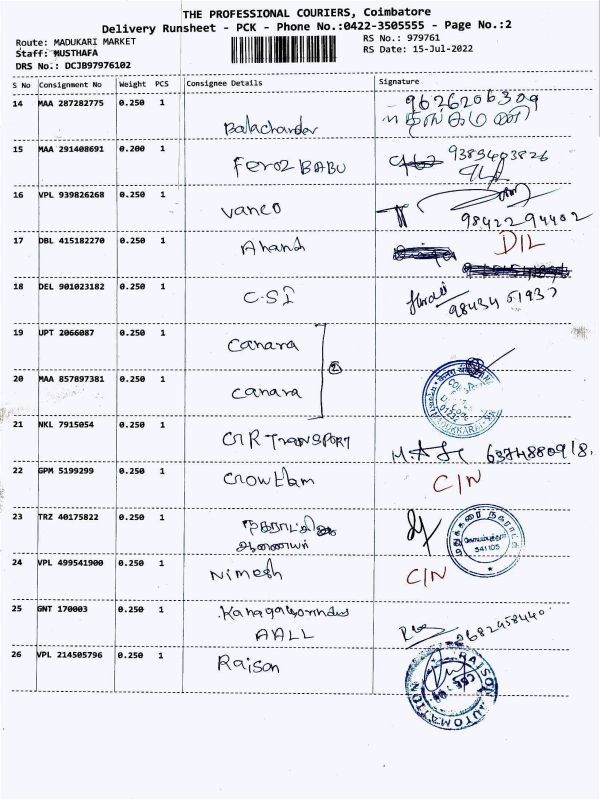 THE PROFESSIONAL COURIERS, Coimbatore
Delivery Runsheet - PCK - Phone No.:0422-3505555 - Page No.:2
Route: MADUKARI MARKET
RS No.: 979761
Staff: MUSTHAFA
RS Date: 15-Jul-2022
DRS No.: DCJB97976102
S No Consignment No Weight PCS Consignee Details Signature
14 MAA 287282775 0.250 1 Balachander 9626206309
15 MAA 291408691 0.200 1 Feroz BABU 9385403826
16 VPL 939826268 0.250 1 Vanco 9842294402
17 DBL 415182270 0.250 1 Anand DIL
18 DEL 901023182 0.250 1 C.S.I 9843451937
19 UPT 2066087 0.250 1 Canara
2
20 MAA 857897381 0.250 1 Canara
21 NKL 7915054 0.250 1 TRANSPORT
22 GPM 5199299 0.250 1 C/N
23 TRZ 40175822 0.250 1 நகராட்சி
ஆணையர்
மதுக்கரை நகராட்சி
Coimbatore
641105
24 VPL 499541900 0.250 1 Nimesh C/N
25 GNT 170003 0.250 1
AALL 9682958440
26 VPL 214505796 0.250 1 Raison
RAISON AUTOMATION
CBE